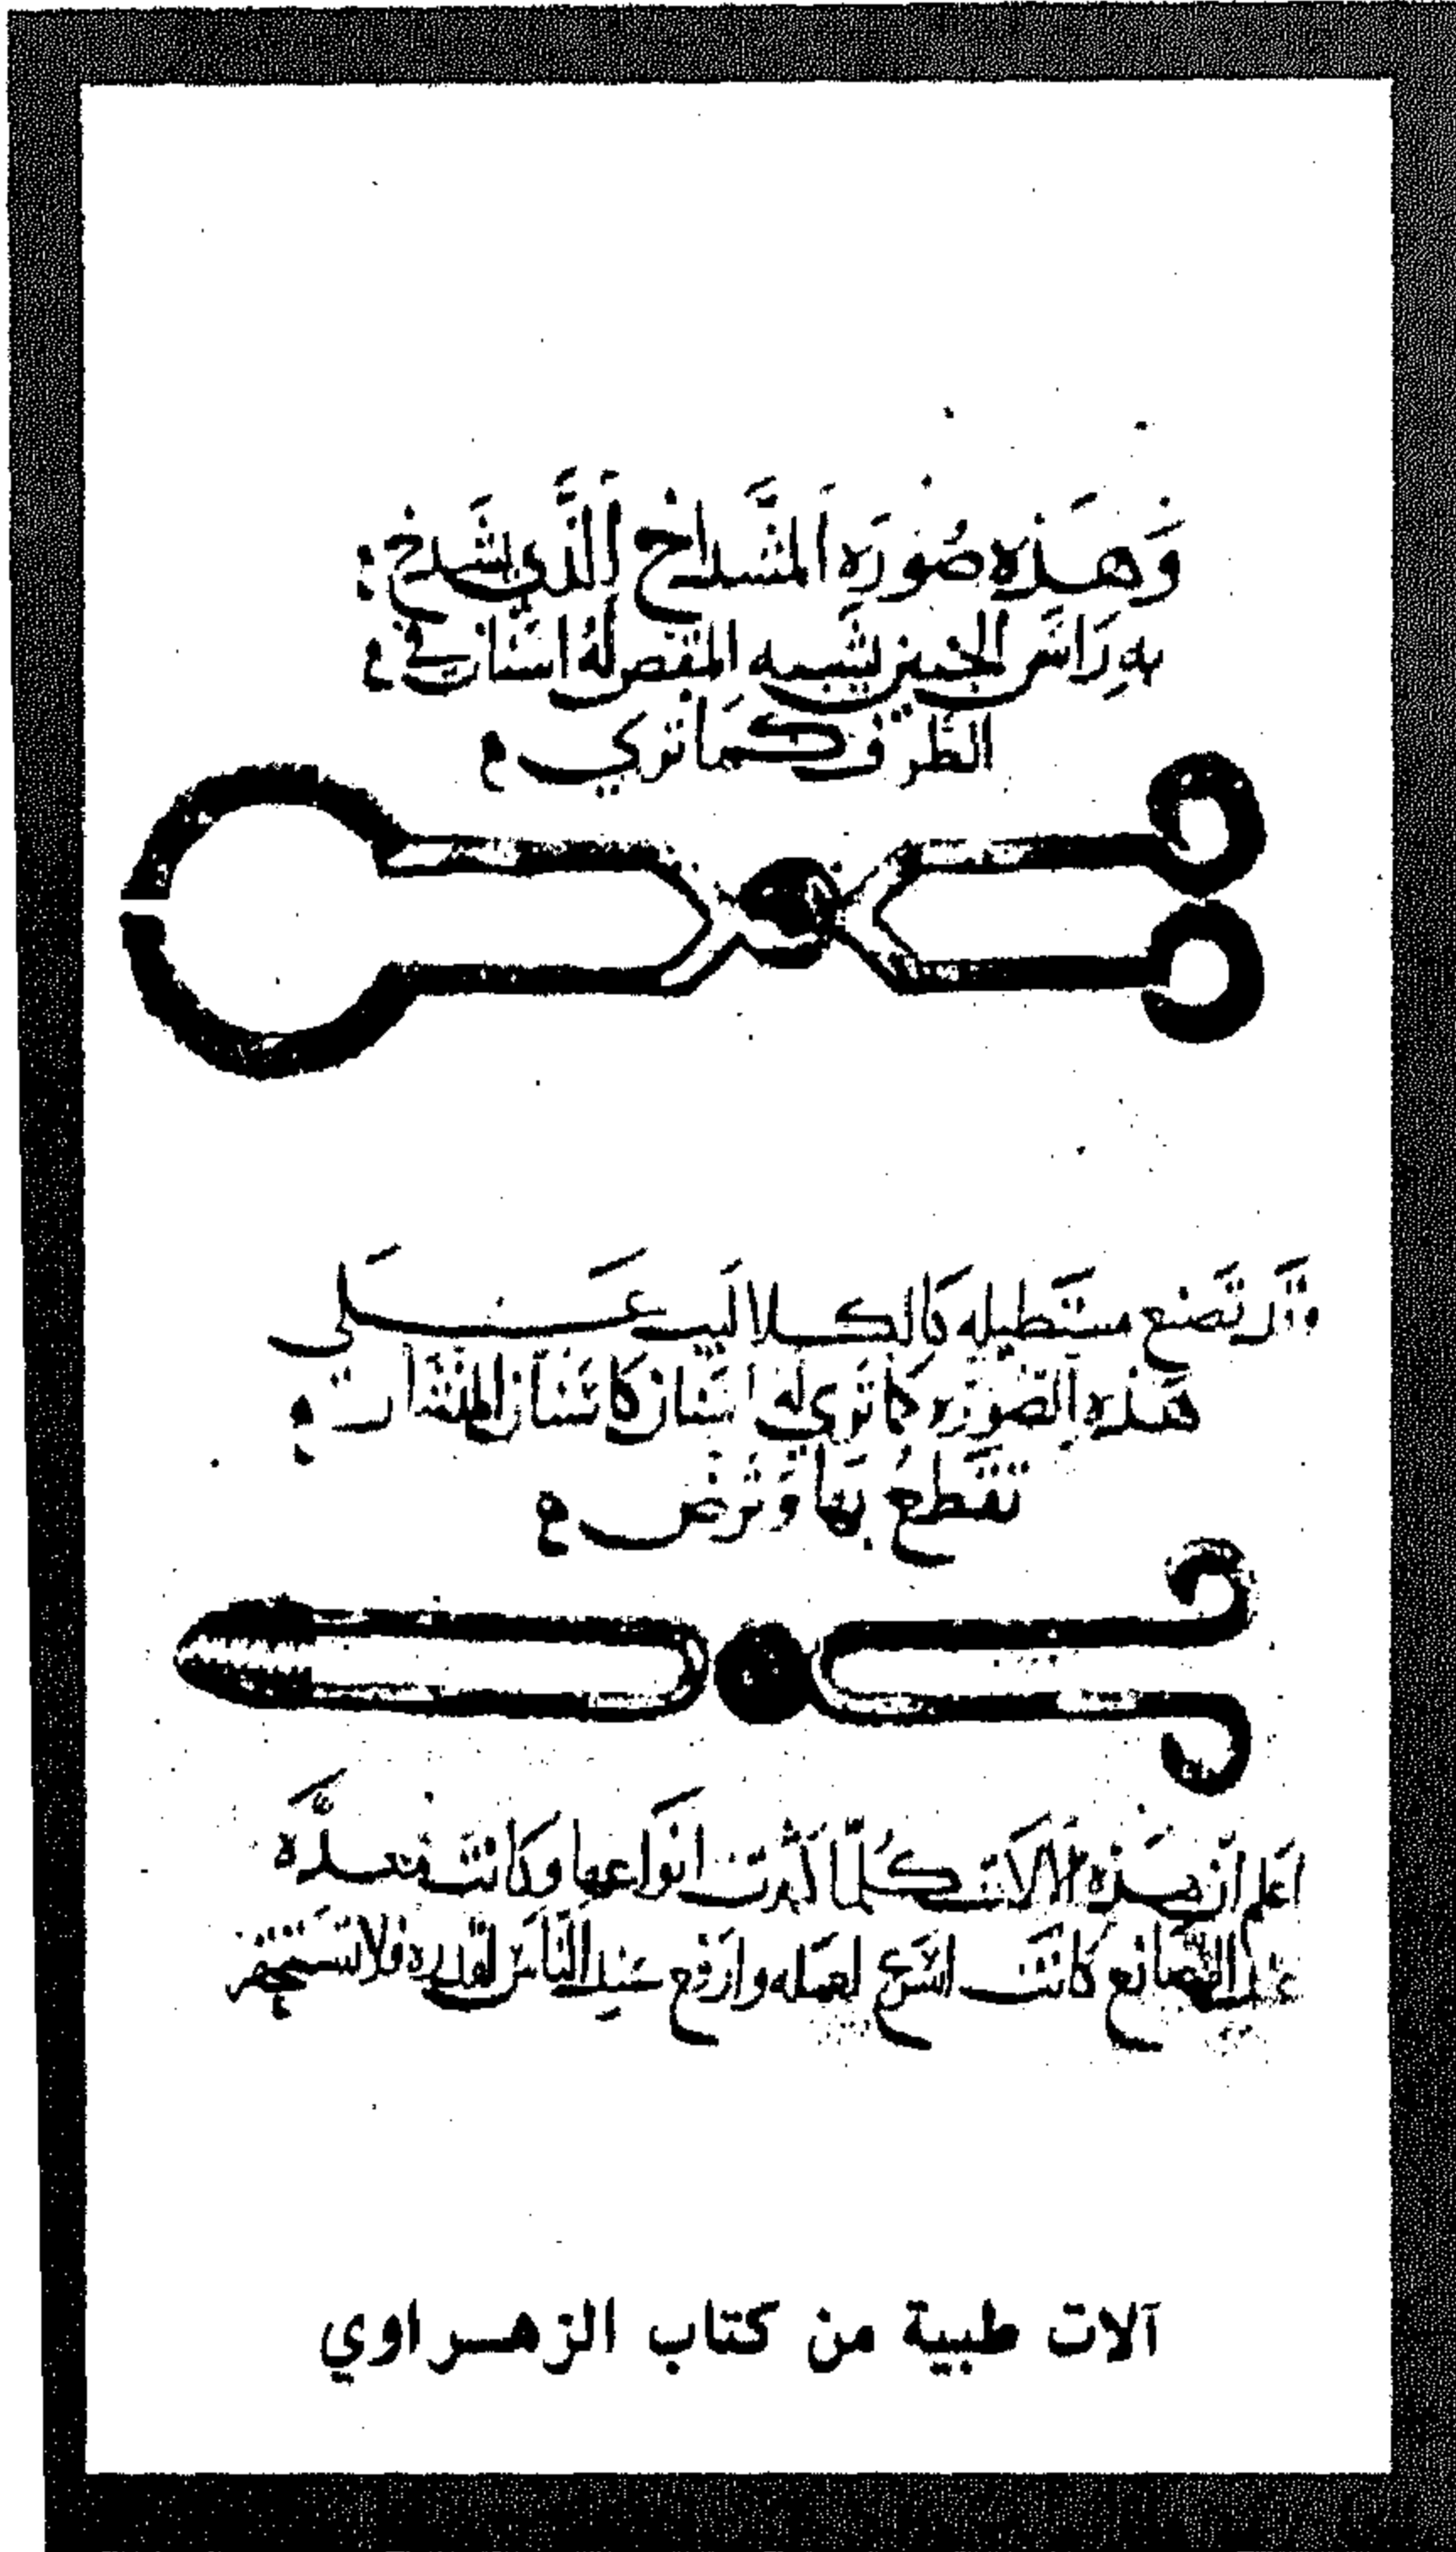 وَهَذِه صُورَة المشداخ الَّذي يشدخ :
به رَاس الجنين يشبه المقص لهُ اسنان في م
الطرف كما تري م
وَقد تصنع مستطيله كَالكلاليب عَلى
هَذه الصُورَه كما تري له اسنان كاسنان المنشار م
تقطع بهَا وَترض م
اعلم ان هَذه الالات كُلّما كَثرت انوَاعها وكَانت معدَّه
عند الصَانع كَانت اسرع لعمله وارفع عند النَاس لقدره فلا تستحقر
آلات طبية من كتاب الزهراوي